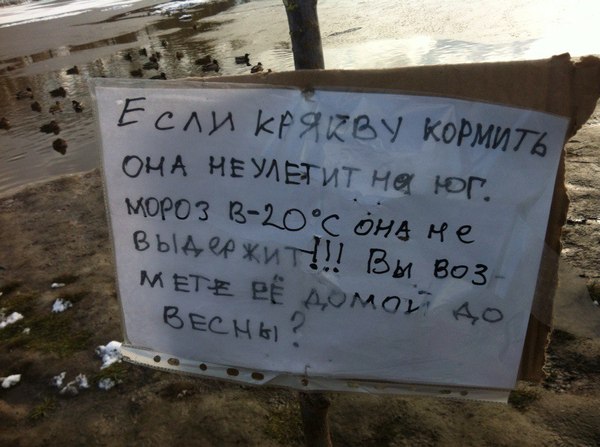 Если крякву кормить
она неулетит на юг.
мороз в-20°С она не
выдержит!!! Вы воз-
мете её домой до
весны?